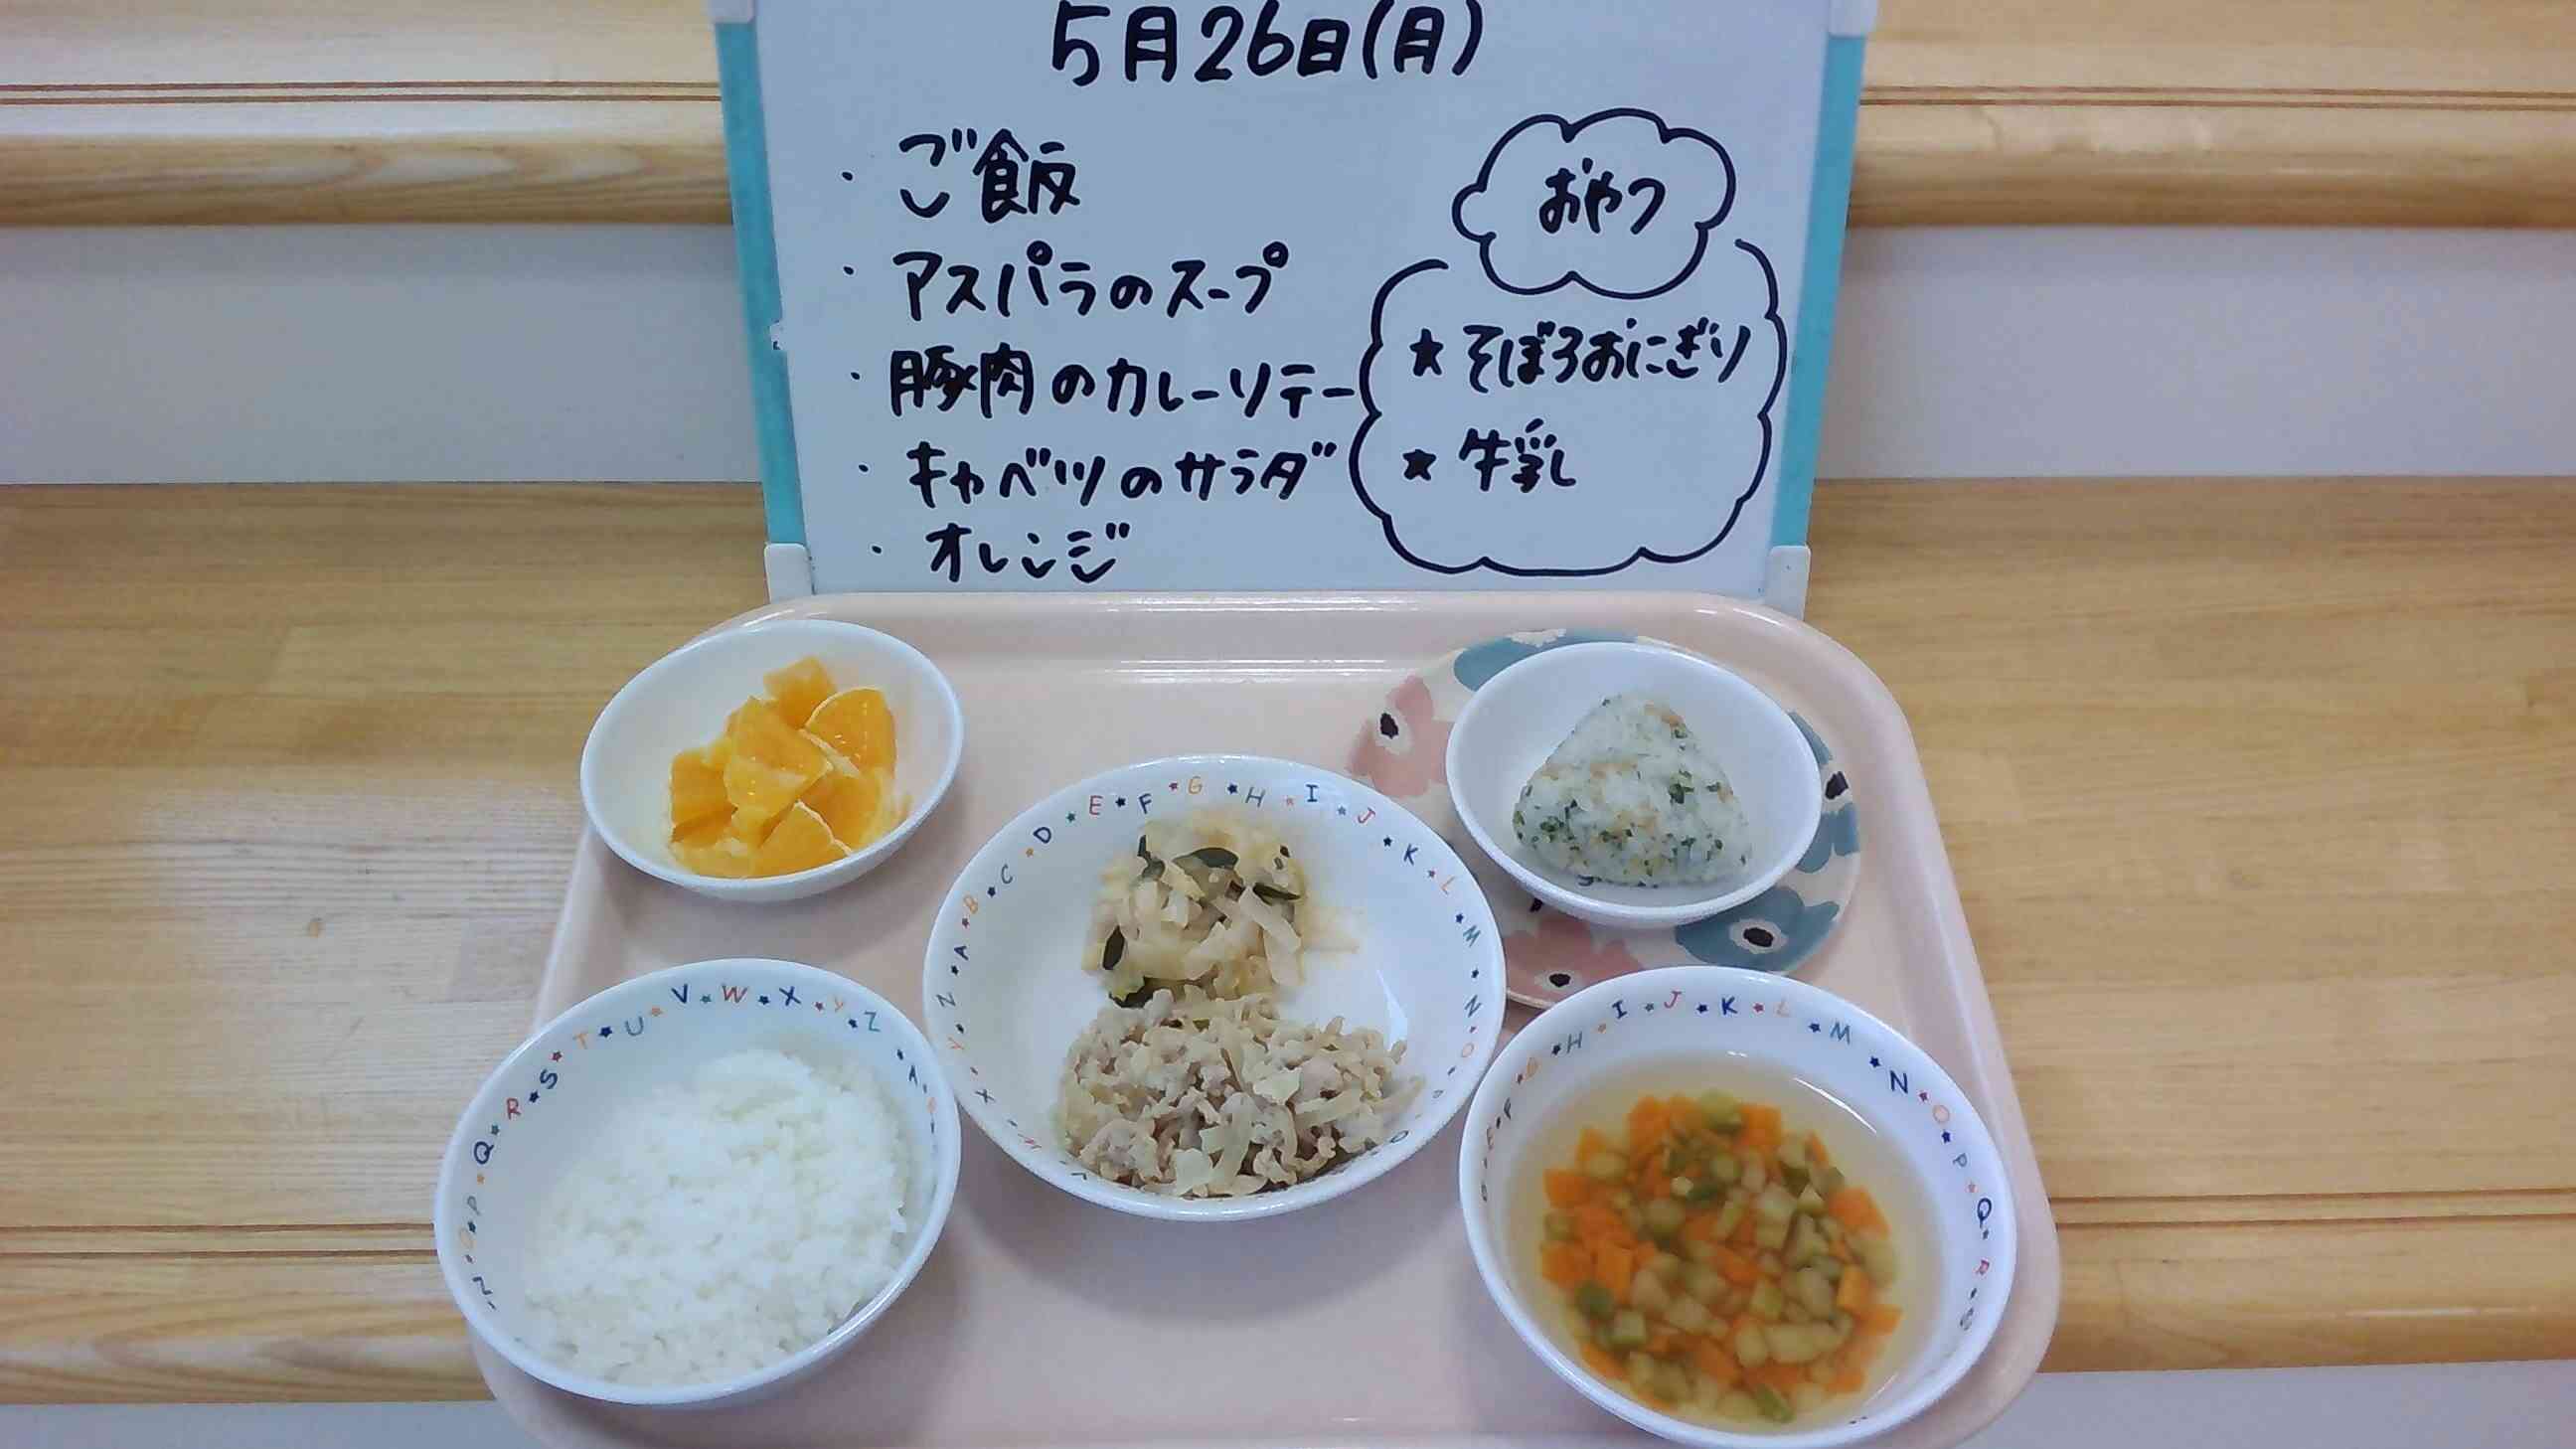 5月26日(月)
・ご飯
・アスパラのスープ
・豚肉のカレーソテー
・キャベツのサラダ
・オレンジ
おやつ
★そぼろおにぎり
★牛乳
A B C D E F G H I J K L M N O P Q
W X Y Z
N O P Q R S T U V W X Y Z A B
E F G H I J K L M N O P Q R S